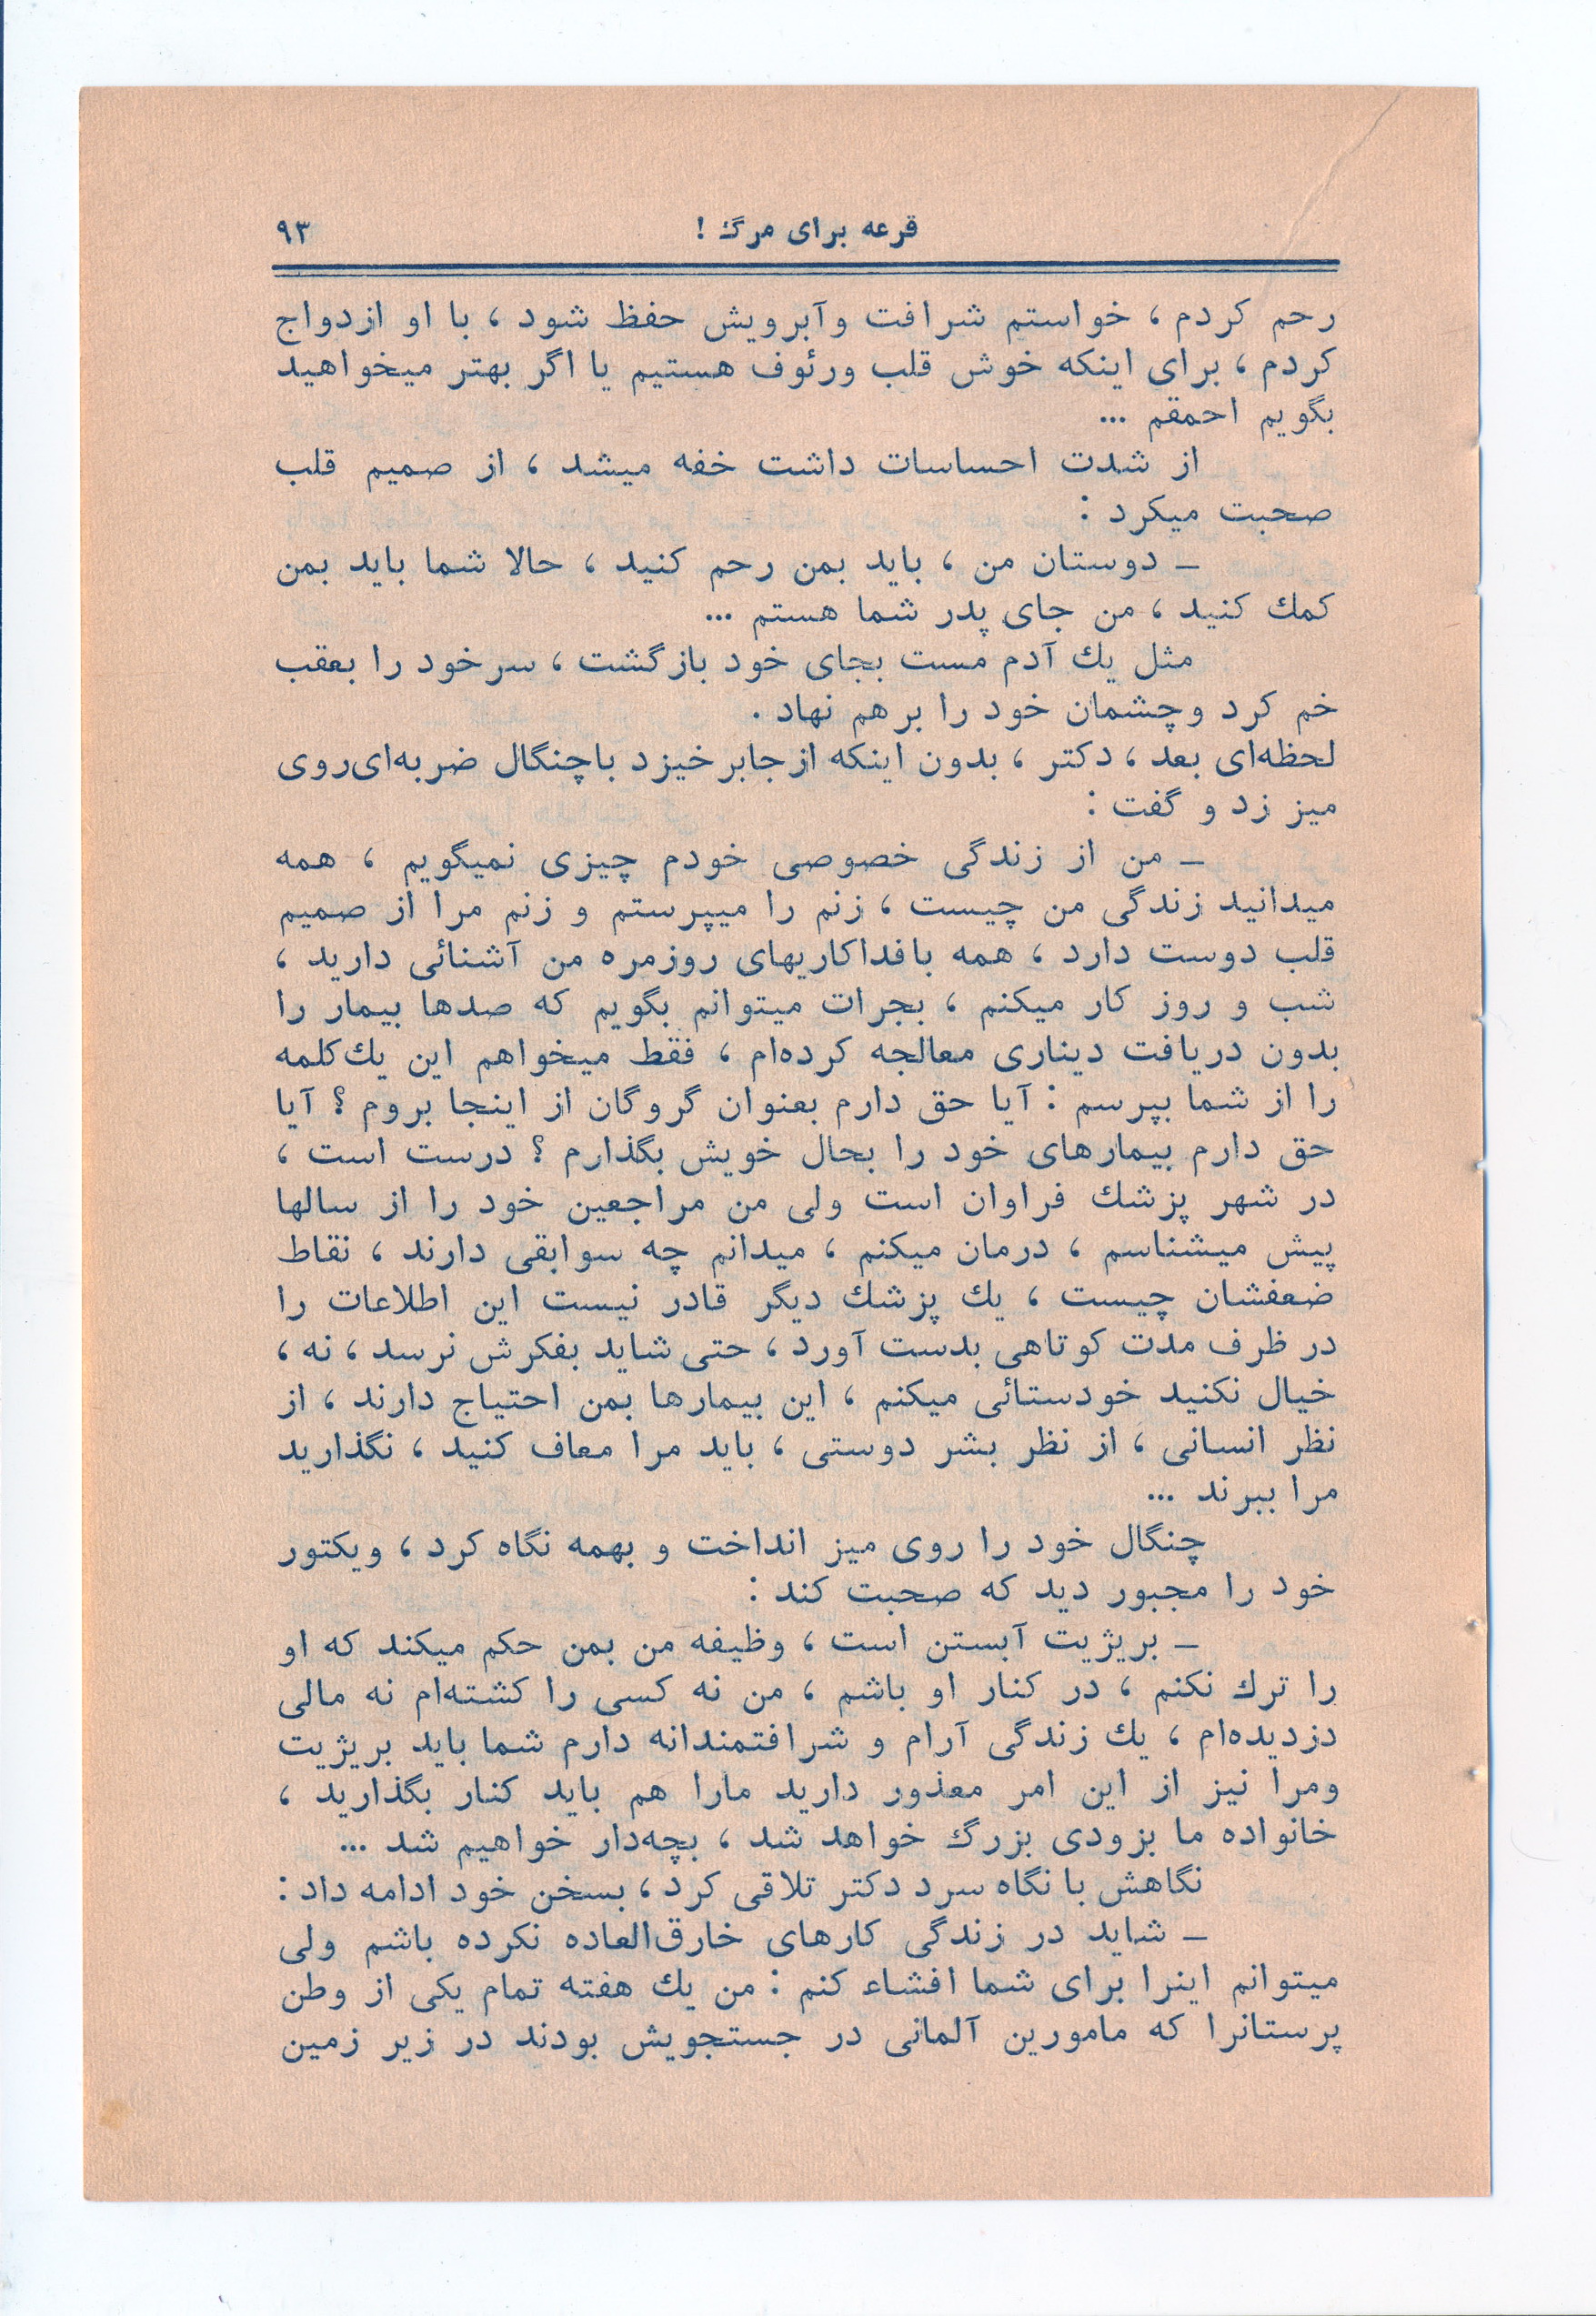 قرعه برای مرگ ! ۹۳
رحم کردم ، خواستم شرافت وآبرویش حفظ شود ، با او ازدواج
کردم ، برای اینکه خوش قلب ورئوف هستیم یا اگر بهتر میخواهید
بگویم احمقم ...
از شدت احساسات داشت خفه میشد ، از صمیم قلب
صحبت میکرد :
ـ دوستان من ، باید بمن رحم کنید ، حالا شما باید بمن
کمك کنید ، من جای پدر شما هستم ...
مثل یك آدم مست بجای خود بازگشت ، سرخود را بعقب
خم کرد وچشمان خود را برهم نهاد .
لحظه‌ای بعد ، دکتر ، بدون اینکه ازجابرخیزد باچنگال ضربه‌ای‌روی
میز زد و گفت :
ـ من از زندگی خصوصی خودم چیزی نمیگویم ، همه
میدانید زندگی من چیست ، زنم را میپرستم و زنم مرا از صمیم
قلب دوست دارد ، همه بافداکاریهای روزمره من آشنائی دارید ،
شب و روز کار میکنم ، بجرات میتوانم بگویم که صدها بیمار را
بدون دریافت دیناری معالجه کرده‌ام ، فقط میخواهم این یك‌کلمه
را از شما بپرسم : آیا حق دارم بعنوان گروگان از اینجا بروم ؟ آیا
حق دارم بیمارهای خود را بحال خویش بگذارم ؟ درست است ،
در شهر پزشك فراوان است ولی من مراجعین خود را از سالها
پیش میشناسم ، درمان میکنم ، میدانم چه سوابقی دارند ، نقاط
ضعفشان چیست ، یك پزشك دیگر قادر نیست این اطلاعات را
در ظرف مدت کوتاهی بدست آورد ، حتی شاید بفکرش نرسد ، نه ،
خیال نکنید خودستائی میکنم ، این بیمارها بمن احتیاج دارند ، از
نظر انسانی ، از نظر بشر دوستی ، باید مرا معاف کنید ، نگذارید
مرا ببرند ...
چنگال خود را روی میز انداخت و بهمه نگاه کرد ، ویکتور
خود را مجبور دید که صحبت کند :
ـ بریژیت آبستن است ، وظیفه من بمن حکم میکند که او
را ترك نکنم ، در کنار او باشم ، من نه کسی را کشته‌ام نه مالی
دزدیده‌ام ، یك زندگی آرام و شرافتمندانه دارم شما باید بریژیت
ومرا نیز از این امر معذور دارید مارا هم باید کنار بگذارید ،
خانواده ما بزودی بزرگ خواهد شد ، بچه‌دار خواهیم شد ...
نگاهش با نگاه سرد دکتر تلاقی کرد ، بسخن خود ادامه داد :
ـ شاید در زندگی کارهای خارق‌العاده نکرده باشم ولی
میتوانم اینرا برای شما افشاء کنم : من یك هفته تمام یکی از وطن
پرستانرا که مامورین آلمانی در جستجویش بودند در زیر زمین